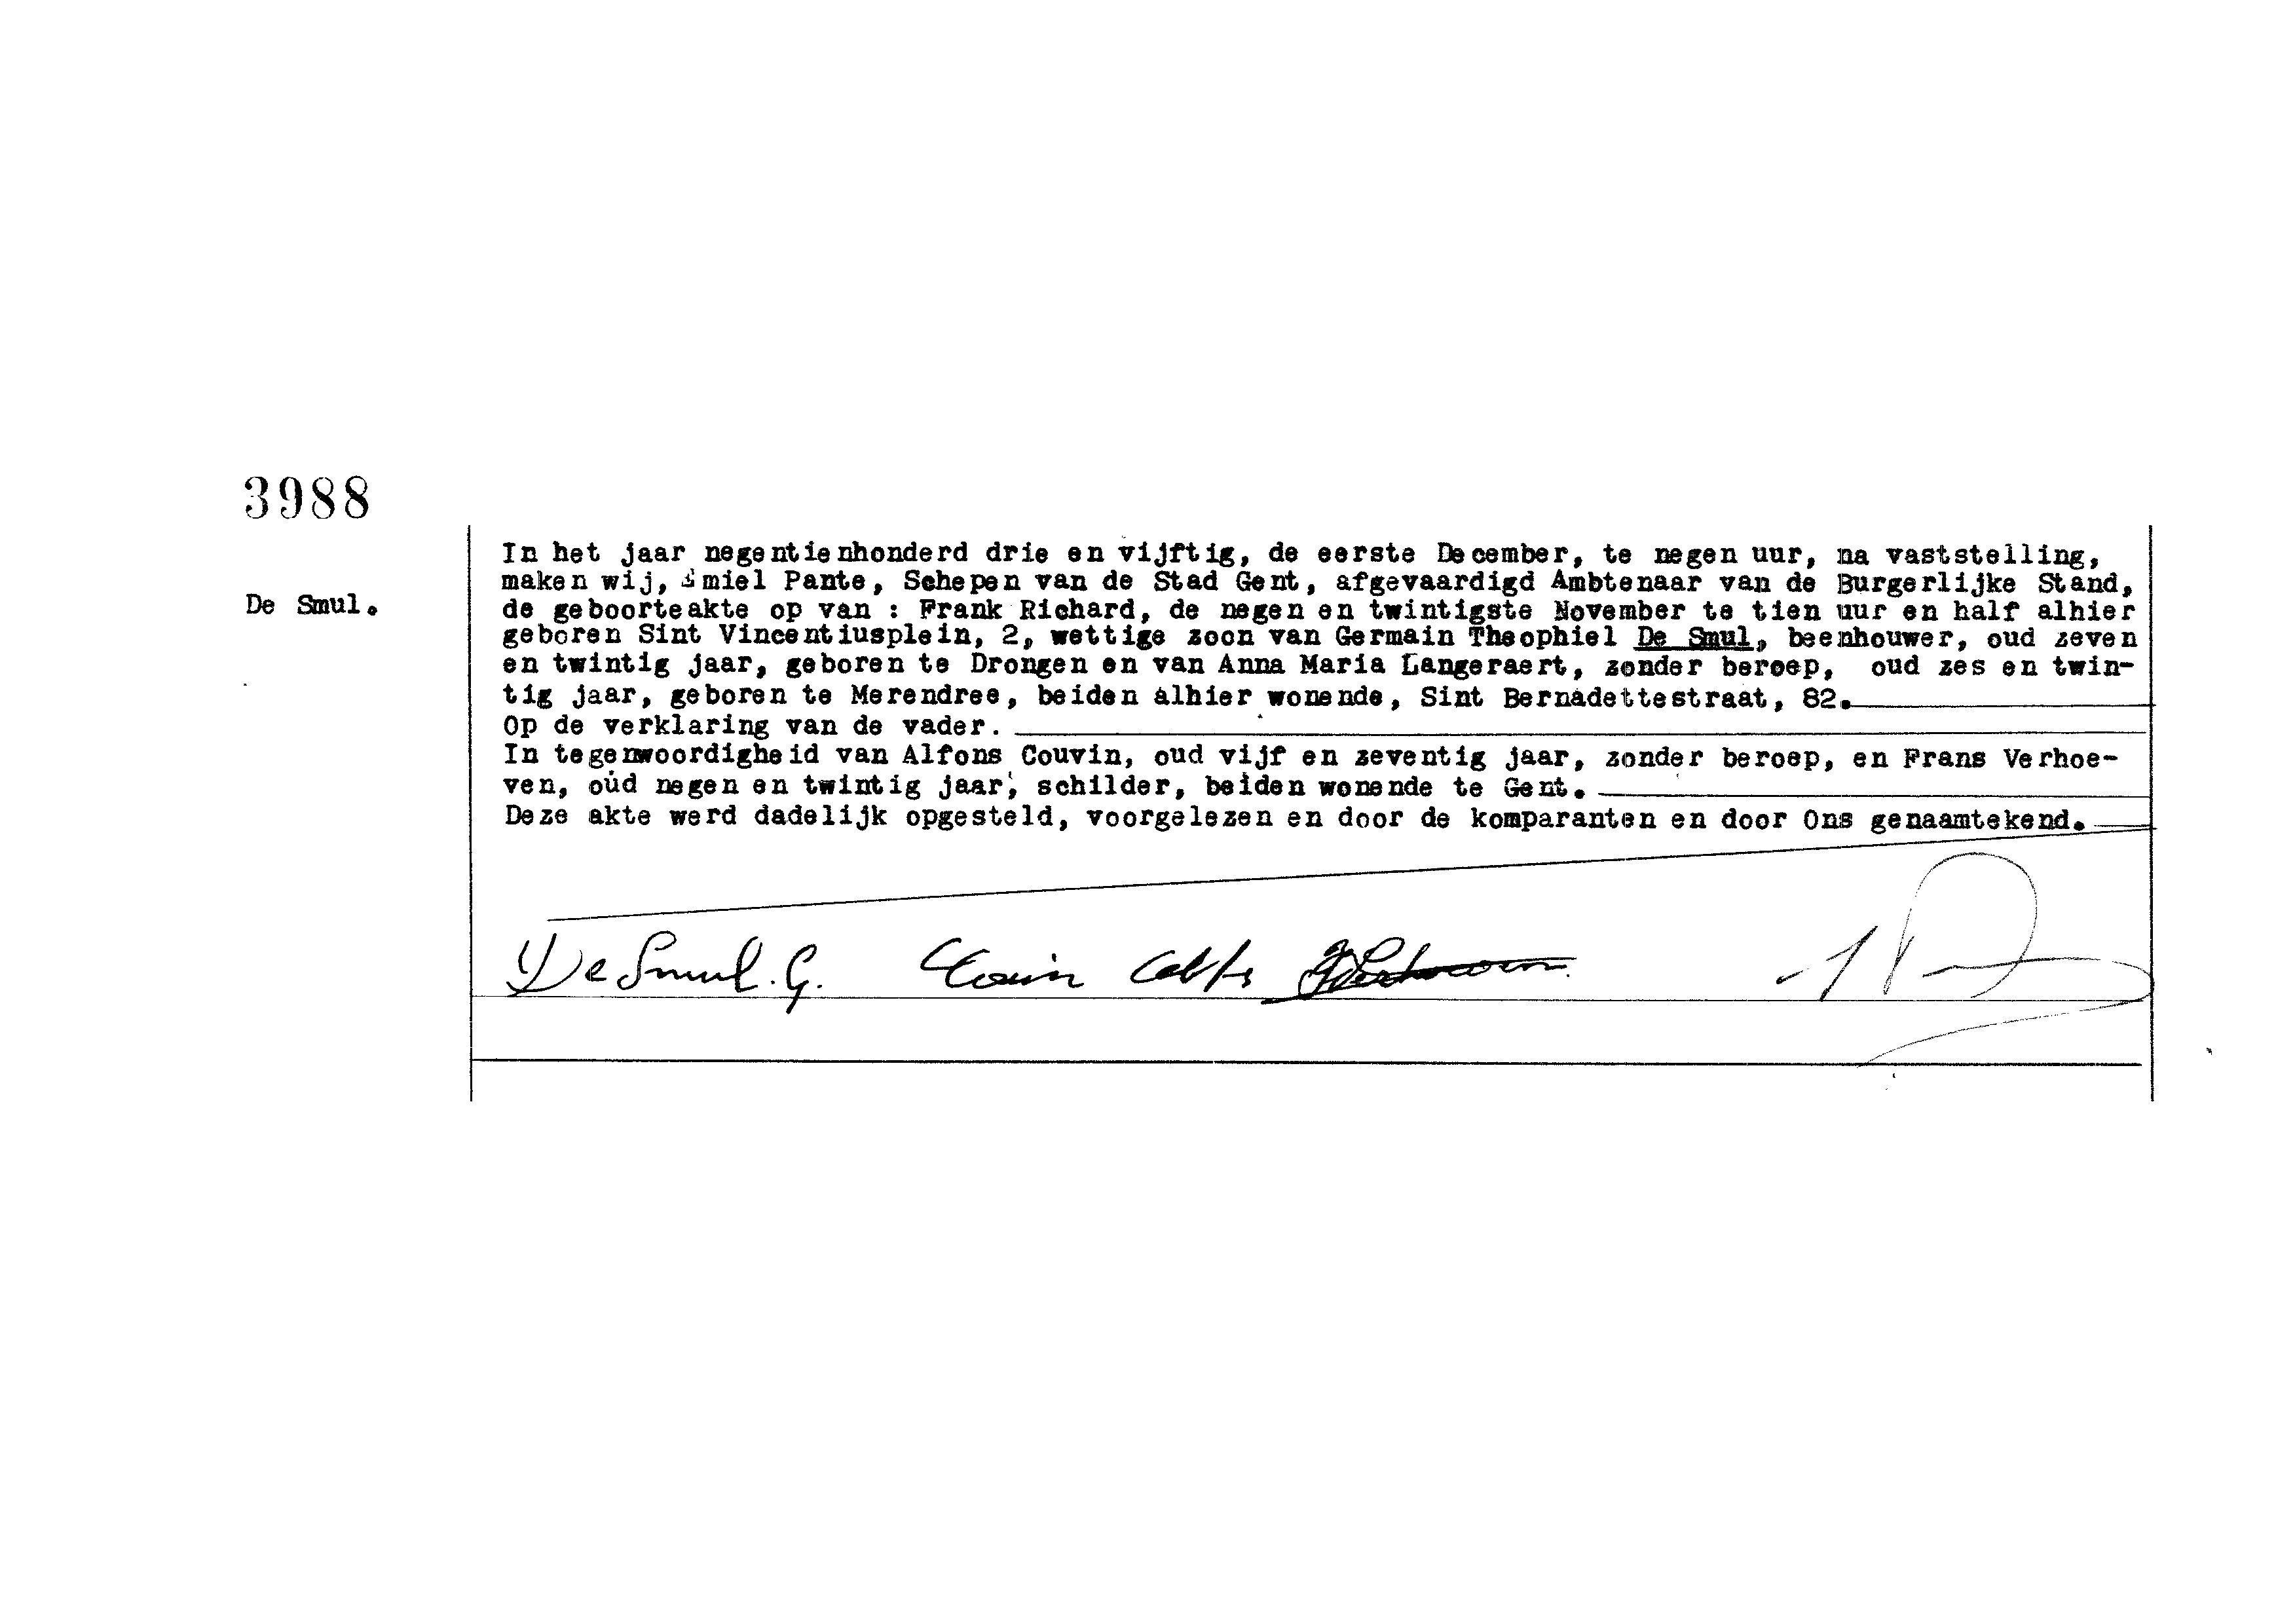 3988
De Smul.
In het jaar negentienhonderd drie en vijftig, de eerste December, te negen uur, na vaststelling,
maken wij, Emiel Pante, Schepen van de Stad Gent, afgevaardigd Ambtenaar van de Burgerlijke Stand,
de geboorteakte op van : Frank Richard, de negen en twintigste November te tien uur en half alhier
geboren Sint Vincentiusplein, 2, wettige zoon van Germain Theophiel De Smul, beenhouwer, oud zeven
en twintig jaar, geboren te Drongen en van Anna Maria Langeraert, zonder beroep, oud zes en twin-
tig jaar, geboren te Merendree, beiden alhier wonende, Sint Bernadettestraat, 82.
Op de verklaring van de vader.
In tegenwoordigheid van Alfons Couvin, oud vijf en zeventig jaar, zonder beroep, en Frans Verhoe-
ven, oud negen en twintig jaar, schilder, beiden wonende te Gent.
Deze akte werd dadelijk opgesteld, voorgelezen en door de komparanten en door Ons genaamtekend.
De Smul. G.